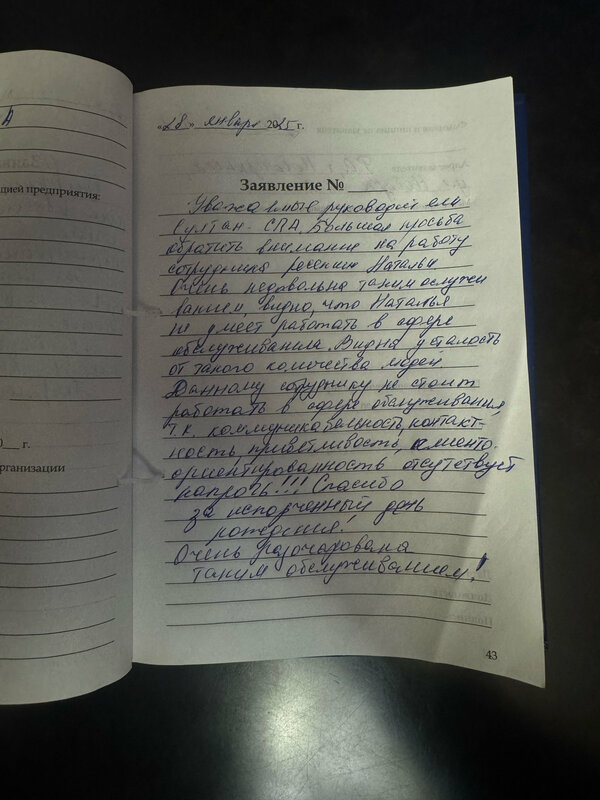 А
цией предприятия:
0__ г.
рганизации
«28» января 2025 г.
Заявление №
Уважаемые руководители
Султан-СПА. Большая просьба
обратить внимание на работу
сотрудника ресепшн Натальи
Очень недовольна таким обслужи
ванием, видно, что Наталья
не умеет работать в сфере
обслуживания. Видна усталость
от такого количества людей.
Данному сотруднику не стоит
работать в сфере обслуживания,
т.к. коммуникабельность, контакт-
ность, приветливость, клиенто-
ориентированность отсутствует
напрочь!!! Спасибо
за испорченный день
рождения!
Очень разочарована
таким обслуживанием!
43